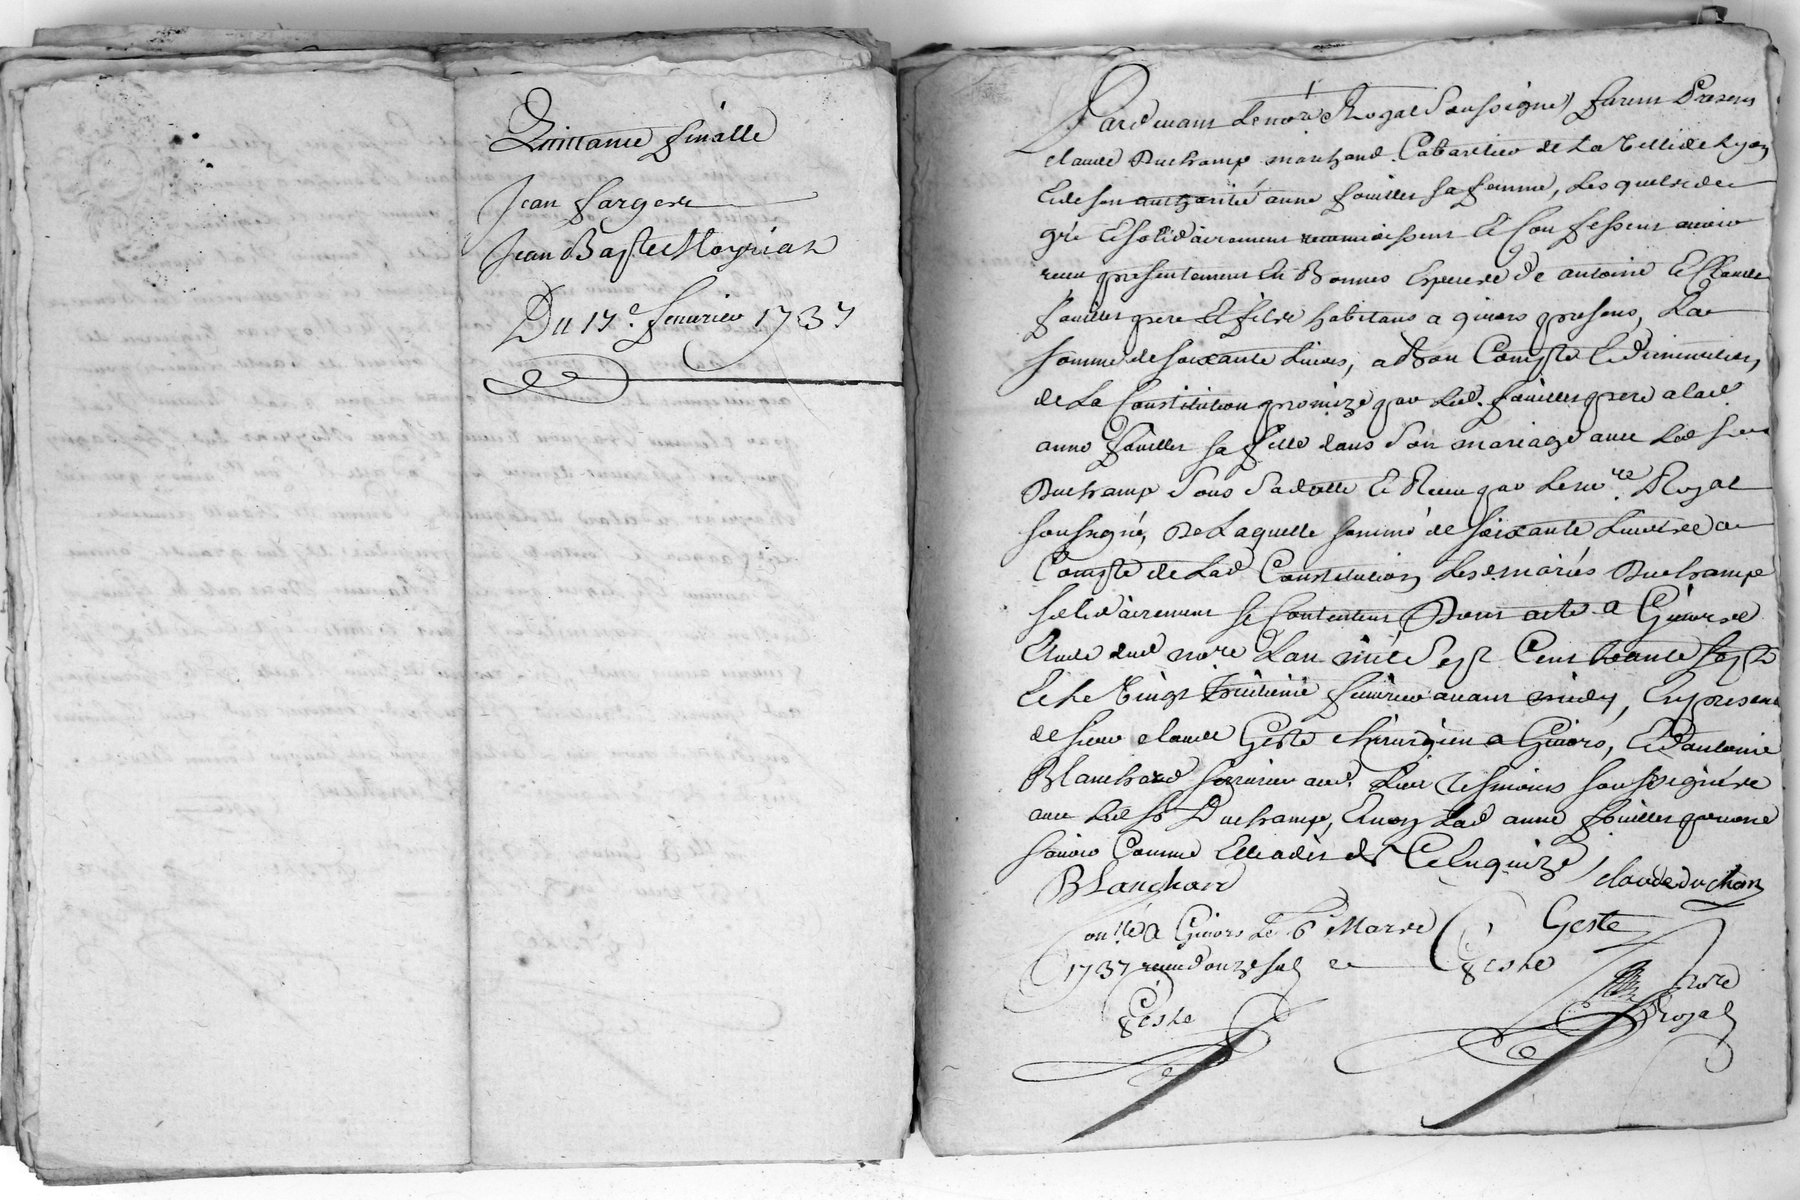 Quittance finalle
Jean fargere
Jean Bapte Moyrian
Du 17e. feuvrier 1737
Pardevant Le no.re Royal Soussigné, furent Presens
claude Duchamp marchand Cabaretier de La Ville de Lyon
Et de son authorité anne fouiller sa femme, Lesquels de
gré Et solidairement reconnoissent Et Confessent avoir
receu presentement En Bonnes Especes de antoine Et Claude
fouiller pere Et fils habitans a givors presens, La
somme de soixante Livres, a Bon Compte Et diminution
de La Constitution promize par Led. fouiller pere a lad.
anne fouiller sa fille dans son mariage avec Led sieur
Duchamp sous sa datte Et Receu par Le no.re Royal
soussigné, De Laquelle somme de soixante Livres a
Compte de Lad Constitution Les mariés Duchamp
solidairement se Contentent Dont acte a Givors
Etude dud nore Lan mil Sept Cent trente sept
Et Le Vingt huitieme feuvrier avant midy, En presence
de sieur claude Geste chirurgien a Givors, Et d'antoine
Blanchard serrurier aud. Lieu Tesmoins soussignés
avec Led sr Duchamp, Et non Lad anne fouiller pour ne
sçavoir Comme Elle a dit de Ce Enquize
Blanchard
claude duchan
on.llé a Givors Le 6 Mars
1737 receu douze sols
Geste
Geste
Geste
nore
Royal